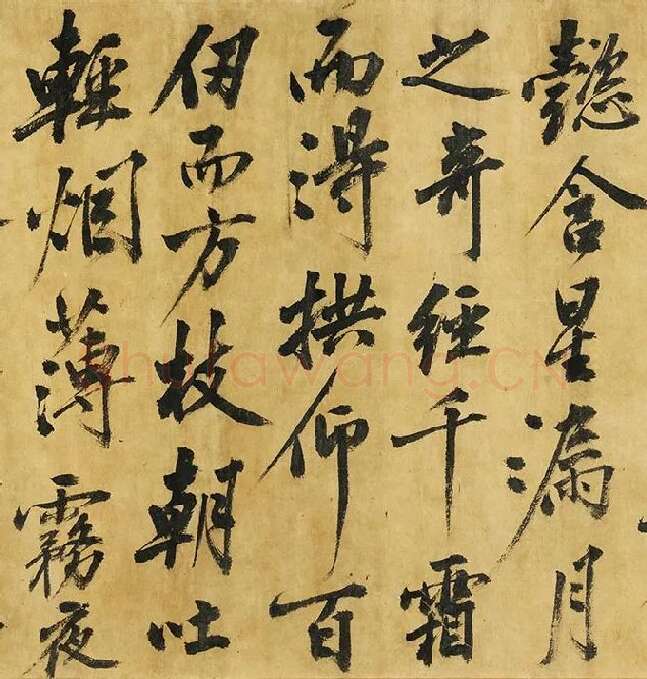 懿含星漏月
之奇經千霜
而得拱仰百
仞而方枝朝吐
輕烟薄霧夜
shufawang.CN